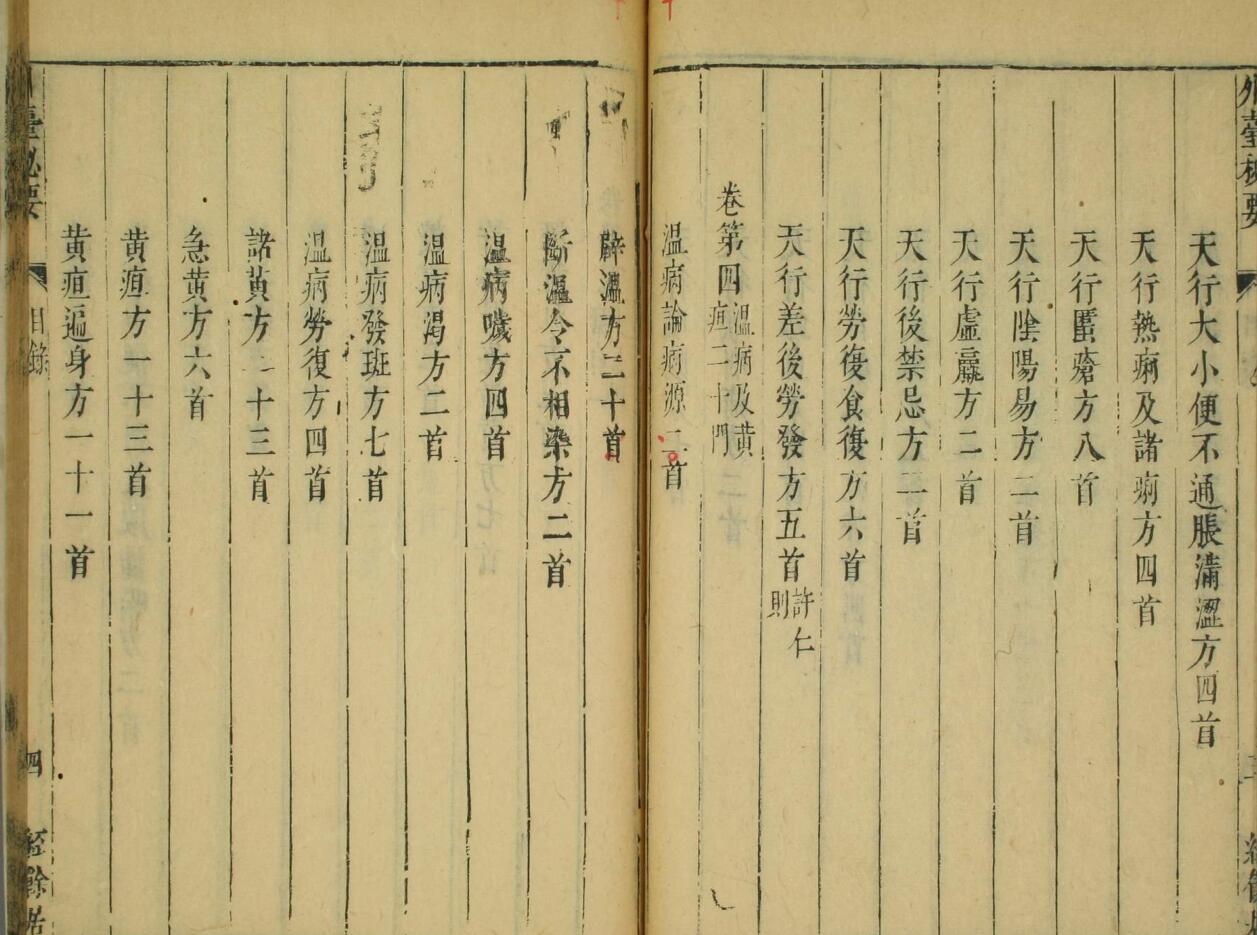 外臺秘要
天行大小便不通脹滿澀方四首
天行熱痢及諸痢方四首
天行䘌瘡方八首
天行陰陽易方二首
天行虛羸方二首
天行後禁忌方二首
天行勞復食復方六首
天行差後勞發方五首許仁則
卷第四溫病及黃疸二十門
溫病論病源二首
辟溫方二十首
斷溫令不相染方二首
溫病噦方四首
溫病渴方二首
溫病發斑方七首
溫病勞復方四首
諸黃方二十三首
急黃方六首
黃疸方一十三首
黃疸遍身方一十一首
臺秘要
目錄
四
經餘居